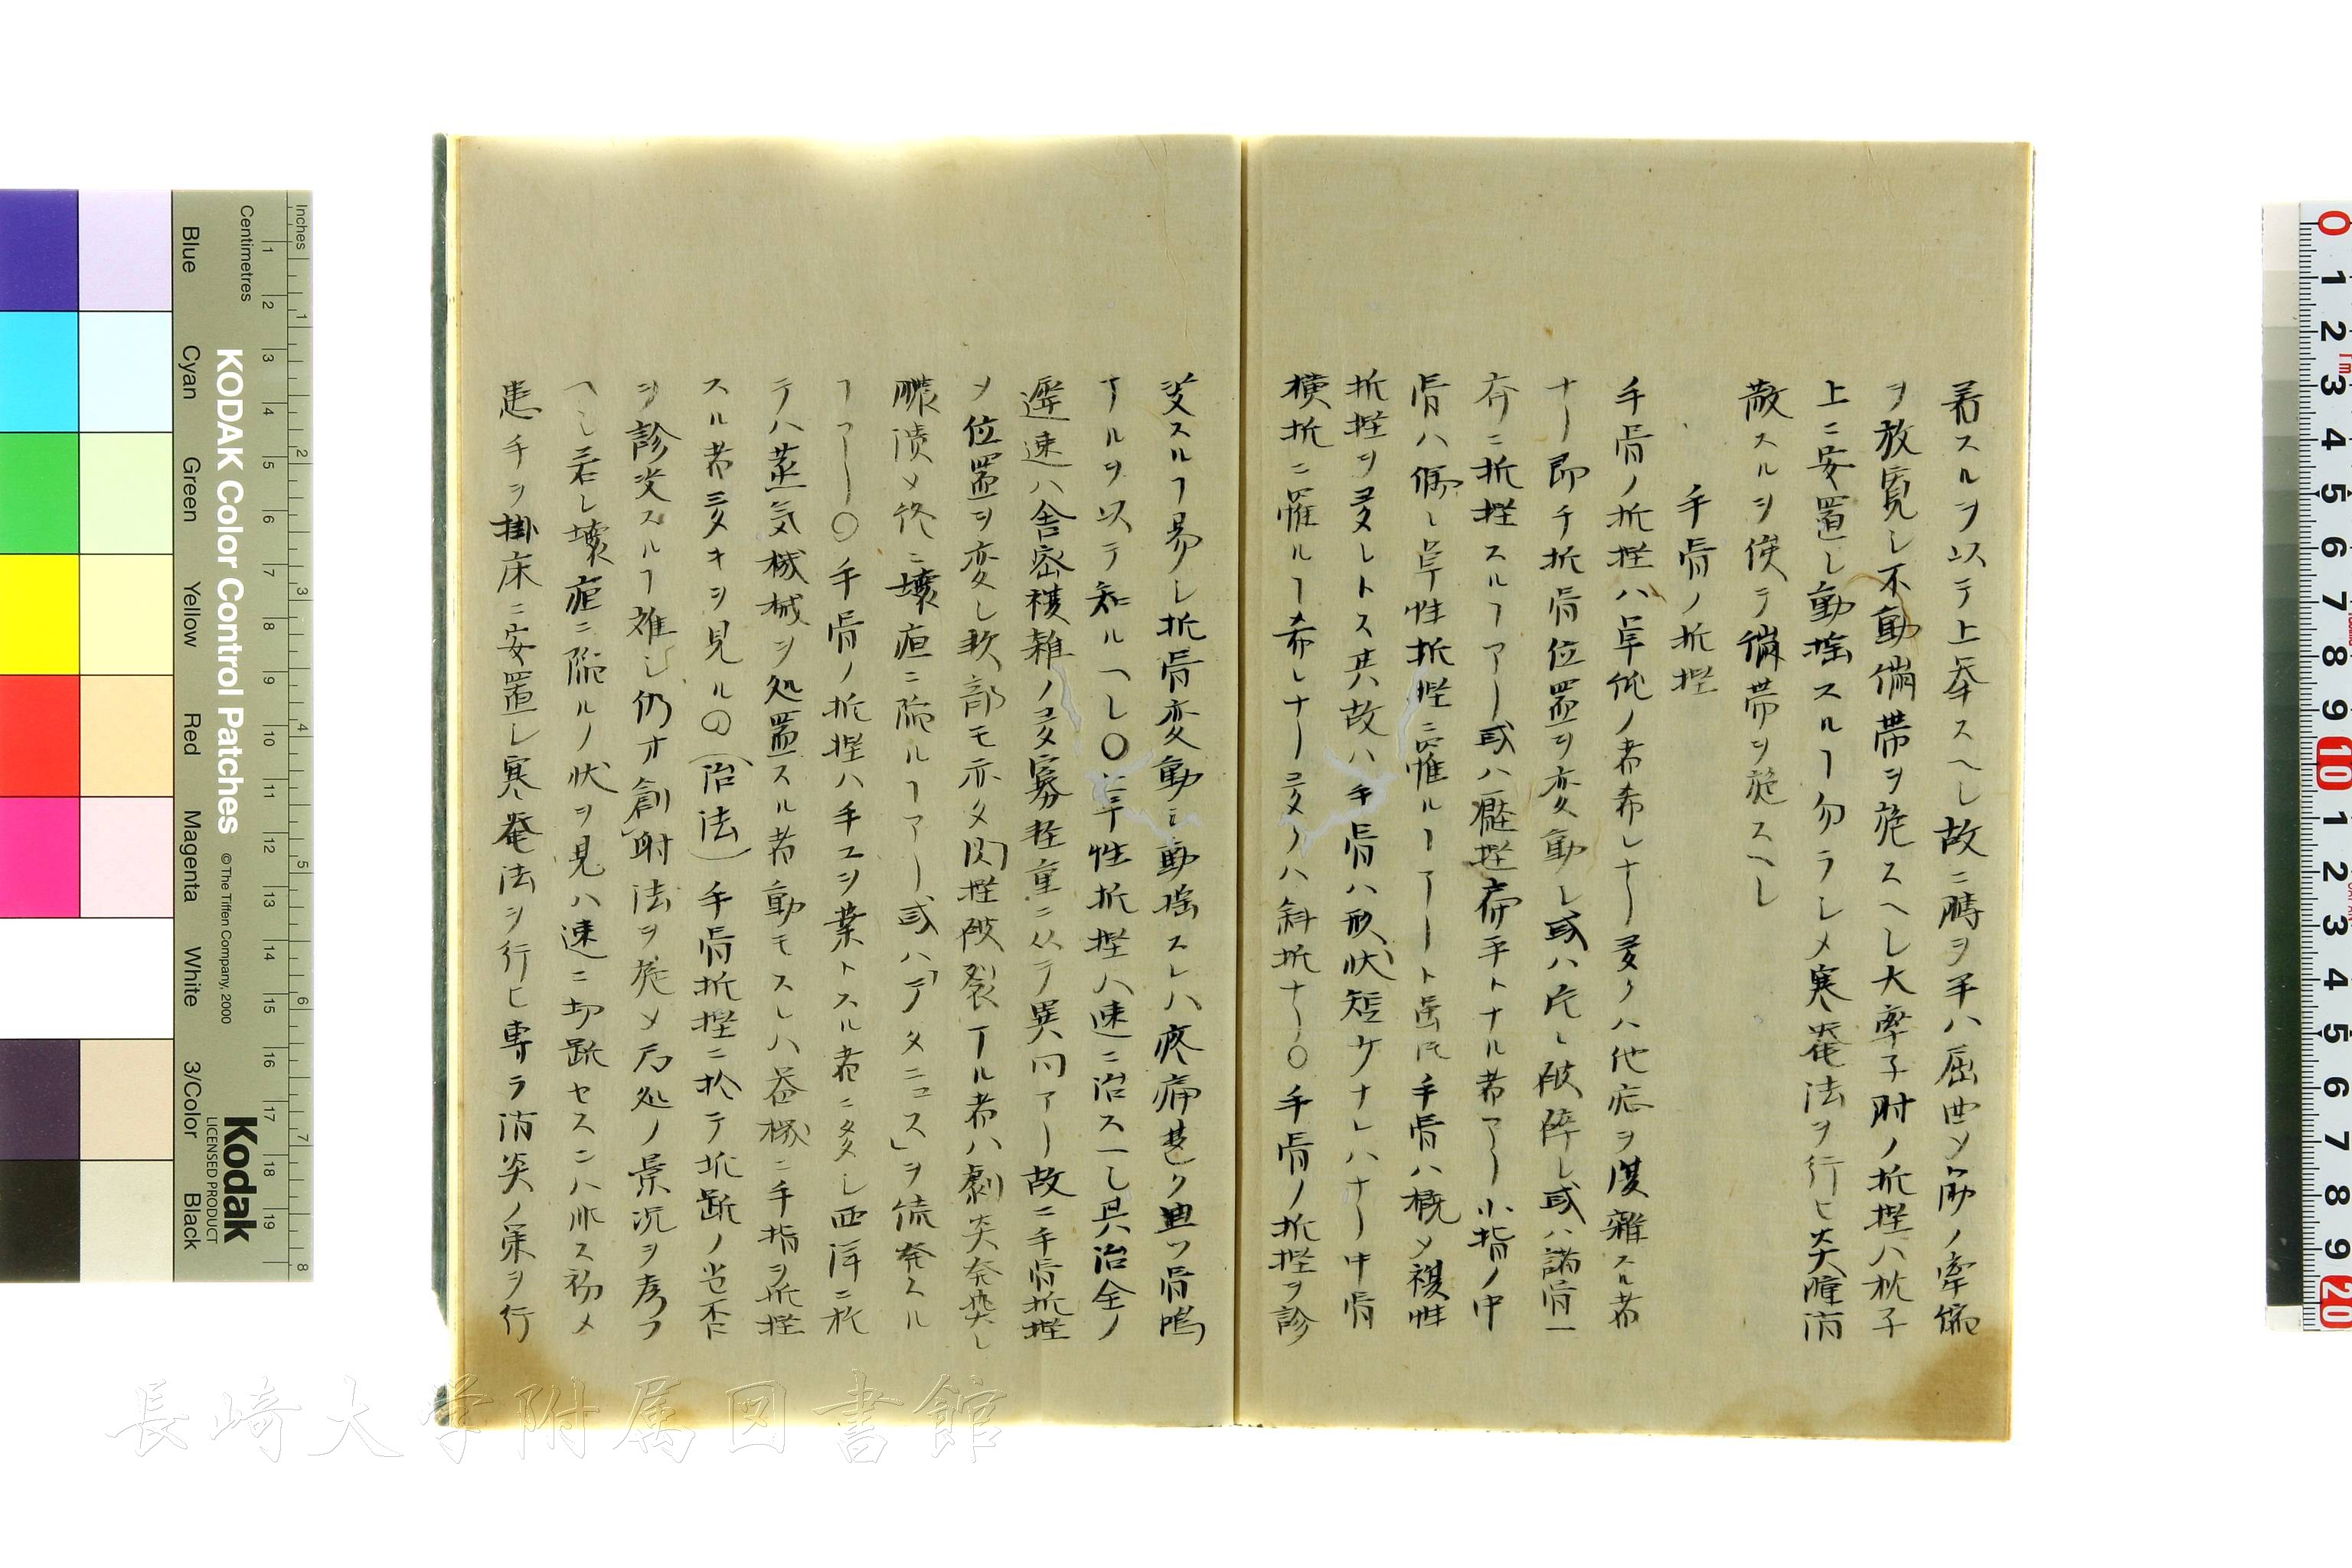 著スルヲ以テ上奉スヘし故ニ膊ヲ平ハ屈曲〆筋ノ牽縮
ヲ放寛し不動繃帯ヲ施スヘし大率子肘ノ折挫ハ枕子
上ニ安置し動揺スルヿ勿ラしメ寒罨法ヲ行ヒ炎腫消
散スルヲ俟テ繃帯ヲ施スヘし
手骨ノ折挫
手骨ノ折挫ハ単純ノ者希しナリ多クハ他症ヲ復雑スル者
ナリ即チ折骨位置ヲ変動し或ハ片々破砕し或ハ諸骨一
斉ニ折挫スルヿアリ或ハ壓挫扁平トナル者アリ小指ノ中
骨ハ偶々単性折挫ニ罹ルヿアリト雖𪜈手骨ハ概〆複性
折挫ヲ多しトス其故ハ手骨ハ形状短ケナしハナリ中骨
横折ニ罹ルヿ希しナリ多クハ斜折ナリ○手骨ノ折挫ヲ診
察スルヿ易し折骨変動シ動揺スしハ疼痛甚ク且ツ骨鳴
アルヲ以テ知ルヘし○単性折挫ハ速ニ治スヘし其治全ノ
遅速ハ舎密複雑ノ多寡軽重ニ从テ異同アリ故ニ手骨折挫
〆位置ヲ変し軟部モ亦タ閃挫破裂スル者ハ劇炎発㷔し
膿潰〆終ニ壊疽ニ陥ルヿアリ或ハ「テタニュス」ヲ続発スル
ヿアリ○手骨ノ折挫ハ手工ヲ業トスル者ニ多し西洋ニ於
テハ蒸気機械ヲ処置スル者動モスしハ器械ニ手指ヲ折挫
スル者多キヲ見ルノ（治法）手骨折挫ニ於テ折断ノ当否
ヲ診察スルヿ難し仍才創肘法ヲ施〆局処ノ景况ヲ考フ
ヘし若し壊疽ニ陥ルノ状ヲ見ハ速ニ切断セスンハ非ス初メ
患手ヲ掛床ニ安置し寒罨法ヲ行ヒ専ラ消炎ノ策ヲ行
KODAK Color Control Patches
© The Tiffen Company, 2000
Kodak
LICENSED PRODUCT
Inches
Centimetres
Blue
Cyan
Green
Yellow
Red
Magenta
White
3/Color
Black
長崎大学附属図書館